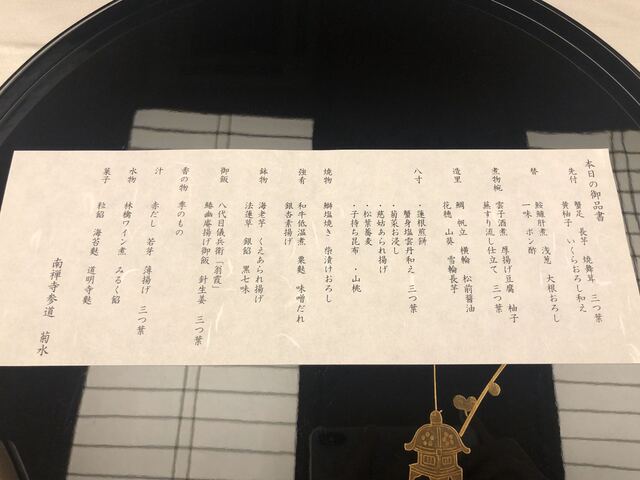 本日の御品書
先付 蟹足 長芋 焼舞茸 三つ葉
黄柚子 いくらおろし和え
替 鮟鱇肝煮 浅葱 大根おろし
一味 ポン酢
煮物椀 雲子酒煮 厚揚げ豆腐 柚子
蕪すり流し仕立て 三つ葉
造里 鯛 帆立 横輪 松前醤油
花穂 山葵 雪輪長芋
八寸 ・蓮根煎餅
・蟹身塩雲丹和え 三つ葉
・菊菜お浸し
・慈姑あられ揚げ
・松葉蕎麦
・子持ち昆布 ・山桃
焼物 鰤塩焼き 柴漬けおろし
強肴 和牛低温煮 粟麩 味噌だれ
銀杏素揚げ
鉢物 海老芋 くえあられ揚げ
法蓮草 銀餡 黒七味
御飯 八代目儀兵衛「翁霞」
鰆幽庵揚げ御飯 針生姜 三つ葉
香の物 季のもの
汁 赤だし 若芽 薄揚げ 三つ葉
水物 林檎ワイン煮 みるく餡
菓子 粒餡 海苔麩 道明寺麩
南禅寺参道 菊水